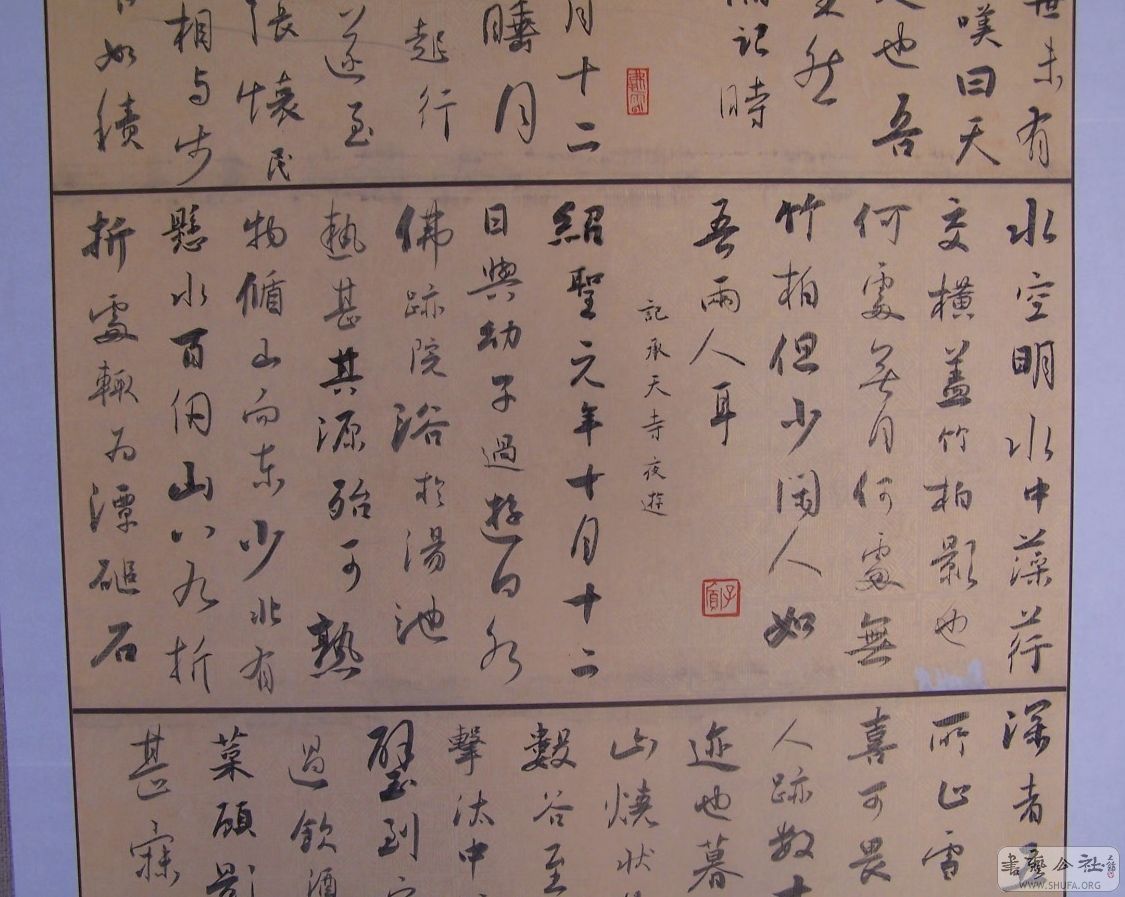 世未有
嘆曰天
也吾
然
記時
月十二
睡月
起行
遂至
張懷民
相与步
如積
水空明水中藻荇
交橫蓋竹柏影也
何處无月何處無
竹柏但少闲人如
吾兩人耳
記承天寺夜遊
子貞
紹聖元年十月十二
日與幼子過遊白水
佛跡院浴於湯池
熱甚其源殆可熟
物循山而东少北有
懸水百仞山八九折
折處輒为潭磓石
深者五
所止雪
喜可畏
人跡数十
迹也暮
山燒状
數谷至
擊汰中
璧到家
過飲酒
菜顧影
甚寐
書藝公社
WWW.SHUFA.ORG